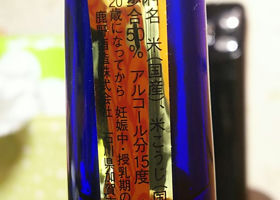 名 米(国産)、米こうじ(国
歩合50% アルコール分15度
20歳になってから 妊娠中・授乳期の
鹿野酒造株式会社 石川県加賀